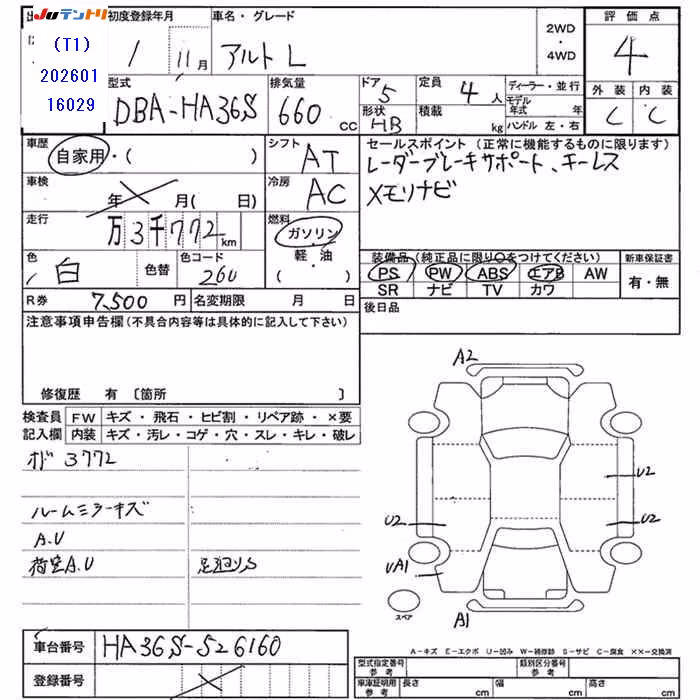 Juテントリ
(T1)
202601
16029
初度登録年月
1 / 11月
車名・グレード
アルト L
2WD
・
4WD
評価点
4
外装 内装
C C
型式
DBA-HA36S
排気量
660 CC
ドア 5
形状 HB
定員 4人
積載 kg
ディーラー・並行
モデル年式 年
ハンドル 左・右
車歴
自家用・( )
シフト AT
車検 年 月( 日)
冷房 AC
走行 万3千772km
燃料
ガソリン
軽・油
( )
色 白 色替
色コード 26U
R券 7,500円
名変期限 月 日
セールスポイント(正常に機能するものに限ります)
レーダーブレーキサポート、キーレス
メモリナビ
装備品(純正品に限り○をつけてください)
PS PW ABS エアB AW
SR ナビ TV カワ
新車保証書
有・無
後日品
注意事項申告欄(不具合内容等は具体的に記入して下さい)
修復歴 有〔箇所 〕
検査員 FW キズ・飛石・ヒビ割・リペア跡・×要
記入欄 内装 キズ・汚レ・コゲ・穴・スレ・キレ・破レ
オド 3772
ルームミラーキズ
A.U
荷室A.U
足廻りS
A2
U2
U2
U2
UA1
A1
スペア
車台番号 HA36S-526160
登録番号
A-キズ E-エクボ U-凹み W-補修跡 S-サビ C-腐食 ××-交換済
型式指定番号 参考
類別区分番号 参考
車庫証明用 参考 長さ cm 幅 cm 高さ cm